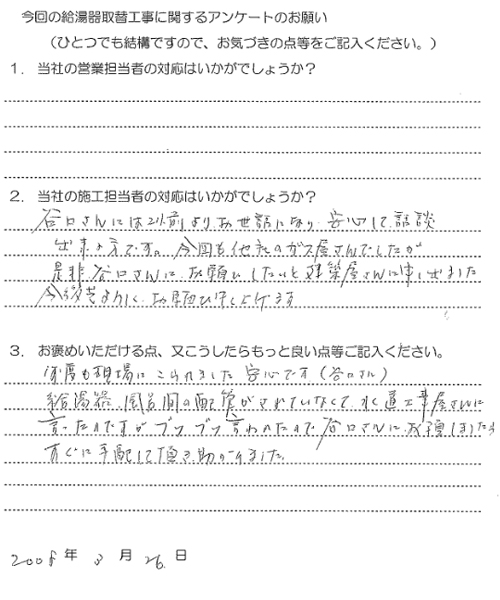 今回の給湯器取替工事に関するアンケートのお願い
（ひとつでも結構ですので、お気づきの点等をご記入ください。）
1．当社の営業担当者の対応はいかがでしょうか？
2．当社の施工担当者の対応はいかがでしょうか？
谷口さんには以前よりお世話になり 安心して 話談
出来る方です。今回も他社のガス屋さんでしたが
是非 谷口さんに お願いしたいと 建築屋さんに申し出ました
今後共よろしく お願い申し上げます
3．お褒めいただける点、又こうしたらもっと良い点等ご記入ください。
何度も現場に こられました 安心です（谷口さん）
給湯器、風呂間の配管がされていなくて、水道工事屋さんに
言ったのですが ブツブツ言われたので 谷口さんに お頼みしましたら
すぐに手配して頂き 助かりました。
2008年 3月 26日